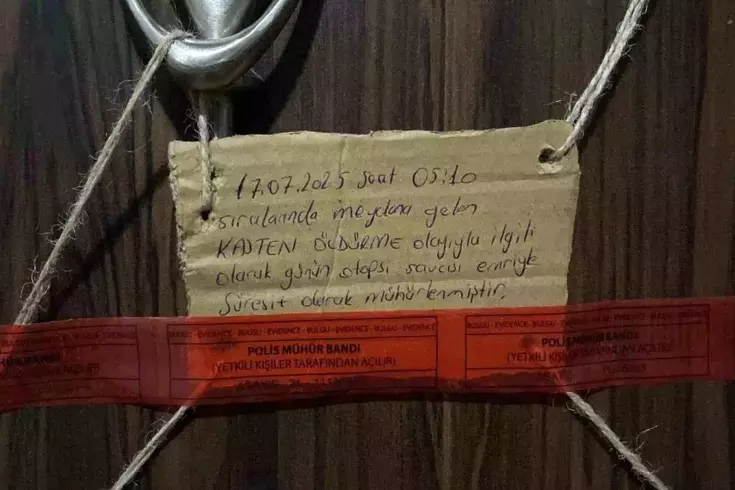 17.07.2025 Saat 05:10
sıralarında meydana gelen
KASTEN ÖLDÜRME olayıyla ilgili
olarak günün otopsi savcısı emriyle
Süresit olarak mühürlenmiştir.
BULGU - EVIDENCE - BULGU - EVIDENCE - BULGU
POLİS MÜHÜR BANDI
(YETKİLİ KİŞİLER TARAFINDAN AÇILIR)
BULGU - EVIDENCE - BULGU - EVIDENCE
POLİS MÜHÜR BANDI
(YETKİLİ KİŞİLER TARAFINDAN AÇILIR)